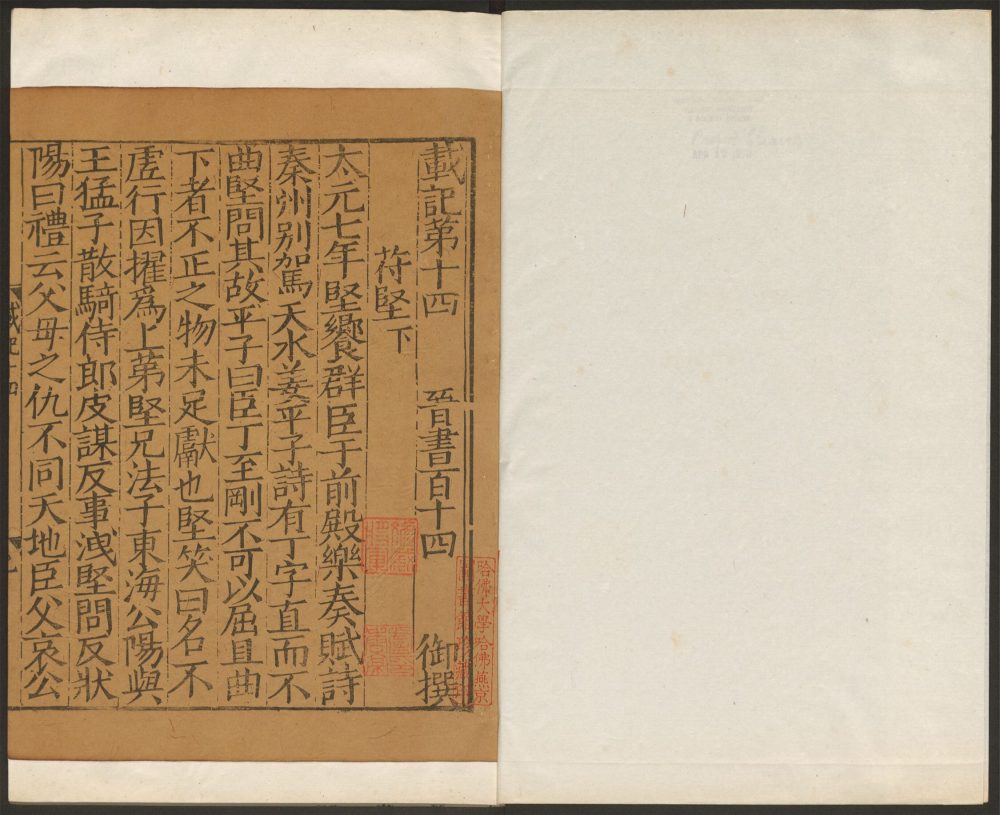 載記第十四 晉書百十四 御撰
苻堅下
太元七年堅饗群臣于前殿樂奏賦詩
秦州別駕天水姜平子詩有丁字直而不
曲堅問其故平子曰臣丁至剛不可以屈且曲
下者不正之物未足獻也堅笑曰名不
虗行因擢爲上第堅兄法子東海公陽與
王猛子散騎侍郎皮謀反事洩堅問反狀
陽曰禮云父母之仇不同天地臣父哀公
哈佛大學哈佛燕京